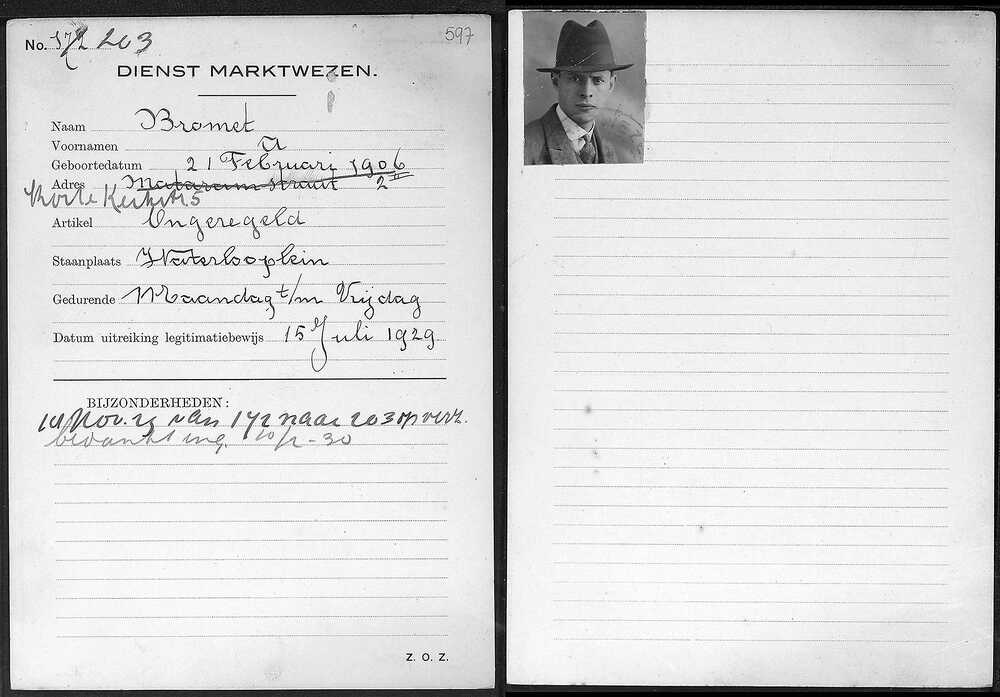 No. 172 203
597
DIENST MARKTWEZEN.
Naam Bromet
Voornamen A
Geboortedatum 21 Februari 1906
Adres Mataramstraat 2 II
Korte Kerkstr 5
Artikel Ongeregeld
Staanplaats Waterlooplein
Gedurende Maandag t/m Vrijdag
Datum uitreiking legitimatiebewijs 15 Juli 1929
BIJZONDERHEDEN:
Nov. 29 van 172 naar 203 op verz.
bedankt ing. 30
Z. O. Z.